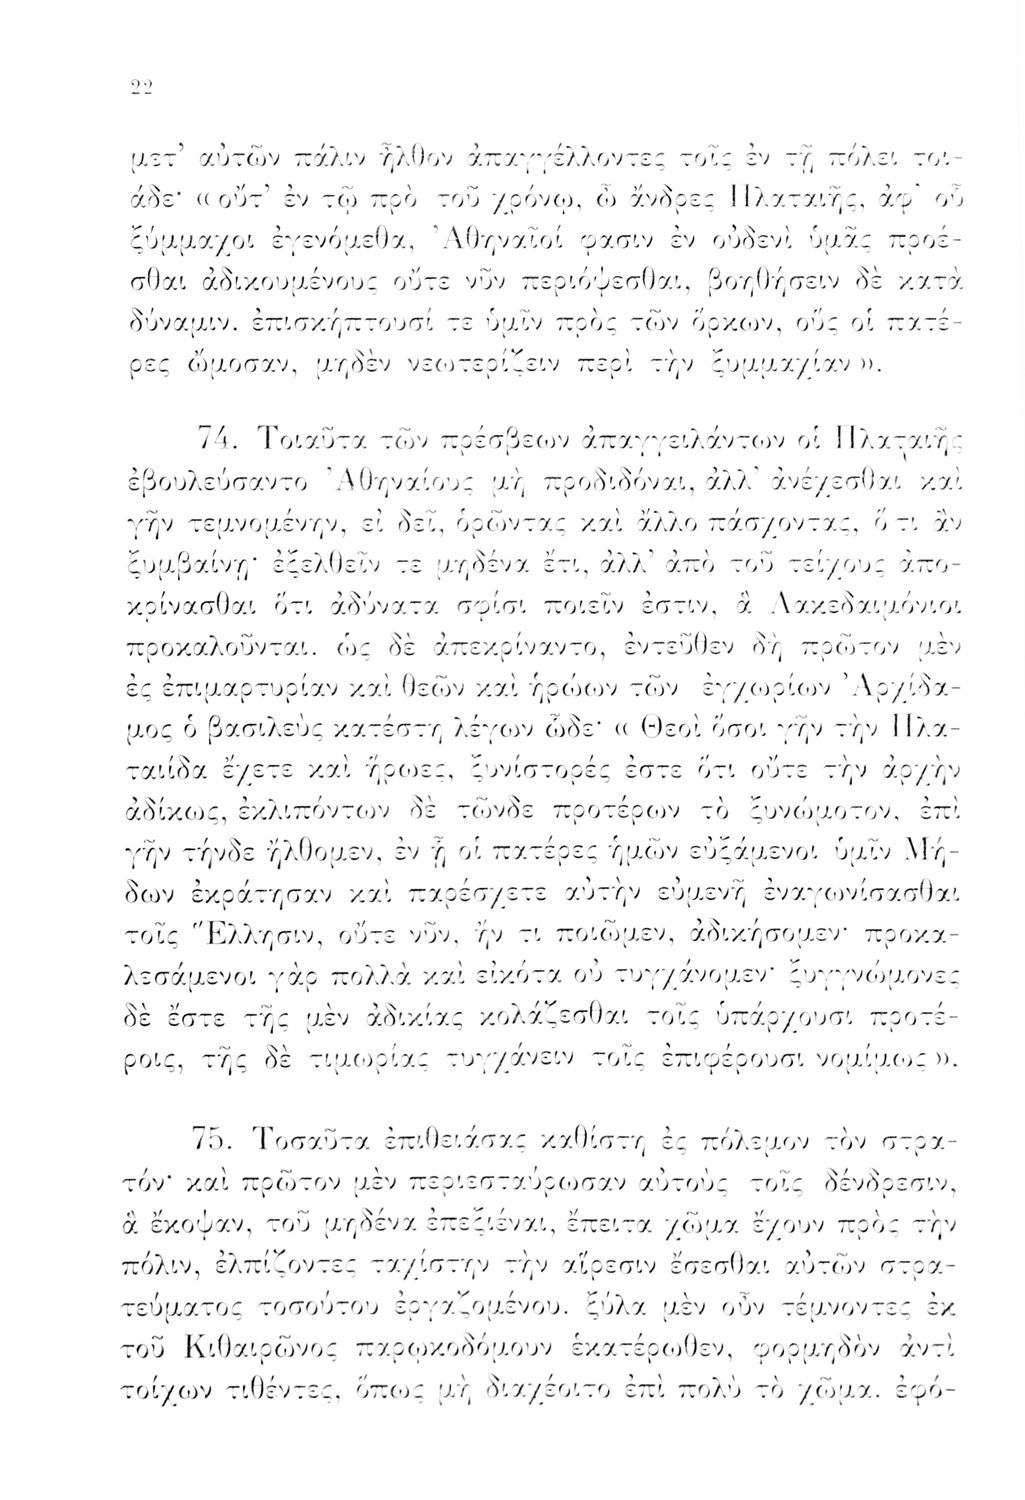 22
μετ’ αὐτῶν πάλιν ἦλθον ἀπαγγέλλοντες τοῖς ἐν τῇ πόλει τοι-
άδε· «οὔτ’ ἐν τῷ πρὸ τοῦ χρόνῳ, ὦ ἄνδρες Πλαταιῆς, ἀφ’ οὗ
ξύμμαχοι ἐγενόμεθα, Ἀθηναῖοί φασιν ἐν οὐδενὶ ὑμᾶς προέ-
σθαι ἀδικουμένους οὔτε νῦν περιόψεσθαι, βοηθήσειν δὲ κατὰ
δύναμιν. ἐπισκήπτουσί τε ὑμῖν πρὸς τῶν ὅρκων, οὓς οἱ πατέ-
ρες ὤμοσαν, μηδὲν νεωτερίζειν περὶ τὴν ξυμμαχίαν».
74. Τοιαῦτα τῶν πρέσβεων ἀπαγγειλάντων οἱ Πλαταιῆς
ἐβουλεύσαντο Ἀθηναίους μὴ προδιδόναι, ἀλλ’ ἀνέχεσθαι καὶ
γῆν τεμνομένην, εἰ δεῖ, ὁρῶντας καὶ ἄλλο πάσχοντας, ὅ τι ἂν
ξυμβαίνῃ· ἐξελθεῖν τε μηδένα ἔτι, ἀλλ’ ἀπὸ τοῦ τείχους ἀπο-
κρίνασθαι ὅτι ἀδύνατα σφίσι ποιεῖν ἐστιν, ἃ Λακεδαιμόνιοι
προκαλοῦνται. ὡς δὲ ἀπεκρίναντο, ἐντεῦθεν δὴ πρῶτον μὲν
ἐς ἐπιμαρτυρίαν καὶ θεῶν καὶ ἡρώων τῶν ἐγχωρίων Ἀρχίδα-
μος ὁ βασιλεὺς κατέστη λέγων ὧδε· « Θεοὶ ὅσοι γῆν τὴν Πλα-
ταιίδα ἔχετε καὶ ἥρωες, ξυνίστορές ἐστε ὅτι οὔτε τὴν ἀρχὴν
ἀδίκως, ἐκλιπόντων δὲ τῶνδε προτέρων τὸ ξυνώμοτον, ἐπὶ
γῆν τήνδε ἤλθομεν, ἐν ᾗ οἱ πατέρες ἡμῶν εὐξάμενοι ὑμῖν Μή-
δων ἐκράτησαν καὶ παρέσχετε αὐτὴν εὐμενῆ ἐναγωνίσασθαι
τοῖς Ἕλλησιν, οὔτε νῦν, ἤν τι ποιῶμεν, ἀδικήσομεν· προκα-
λεσάμενοι γὰρ πολλὰ καὶ εἰκότα οὐ τυγχάνομεν· ξυγγνώμονες
δὲ ἔστε τῆς μὲν ἀδικίας κολάζεσθαι τοῖς ὑπάρχουσι προτέ-
ροις, τῆς δὲ τιμωρίας τυγχάνειν τοῖς ἐπιφέρουσι νομίμως».
75. Τοσαῦτα ἐπιθειάσας καθίστη ἐς πόλεμον τὸν στρα-
τόν· καὶ πρῶτον μὲν περιεσταύρωσαν αὐτοὺς τοῖς δένδρεσιν,
ἃ ἔκοψαν, τοῦ μηδένα ἐπεξιέναι, ἔπειτα χῶμα ἔχουν πρὸς τὴν
πόλιν, ἐλπίζοντες ταχίστην τὴν αἵρεσιν ἔσεσθαι αὐτῶν στρα-
τεύματος τοσούτου ἐργαζομένου. ξύλα μὲν οὖν τέμνοντες ἐκ
τοῦ Κιθαιρῶνος παρῳκοδόμουν ἑκατέρωθεν, φορμηδὸν ἀντὶ
τοίχων τιθέντες, ὅπως μὴ διαχέοιτο ἐπὶ πολὺ τὸ χῶμα. ἐφό-